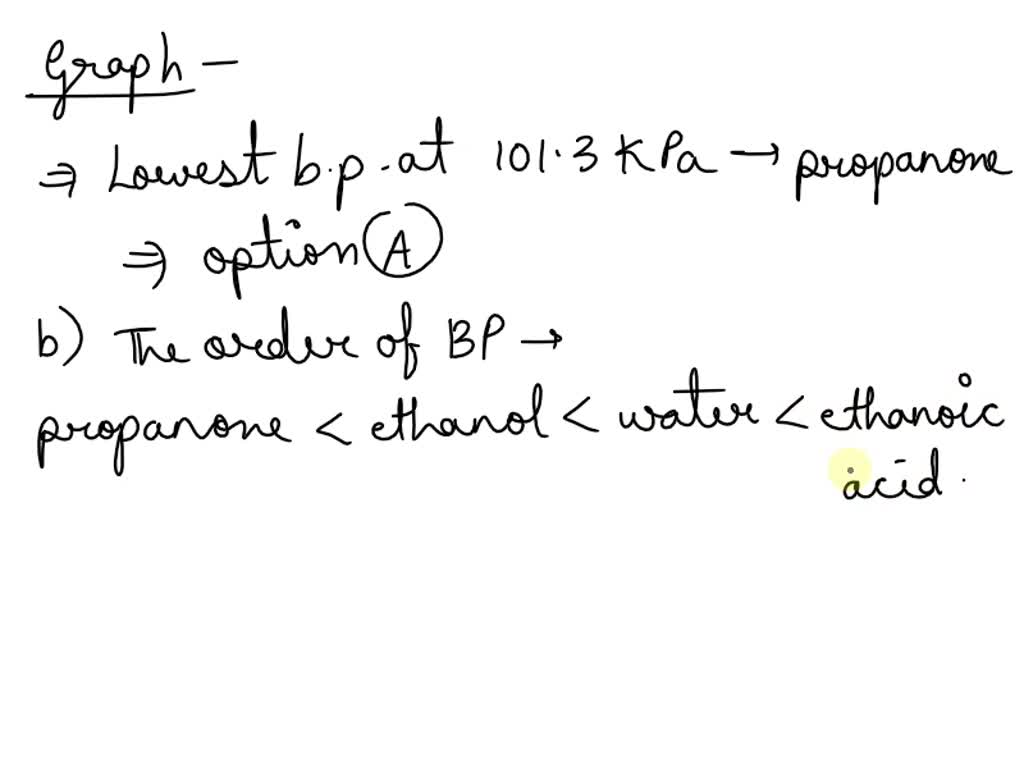 Graph -
⇒ Lowest b.p. at 101.3 KPa → propanone
⇒ option A
b) The order of BP →
propanone < ethanol < water < ethanoic
acid.